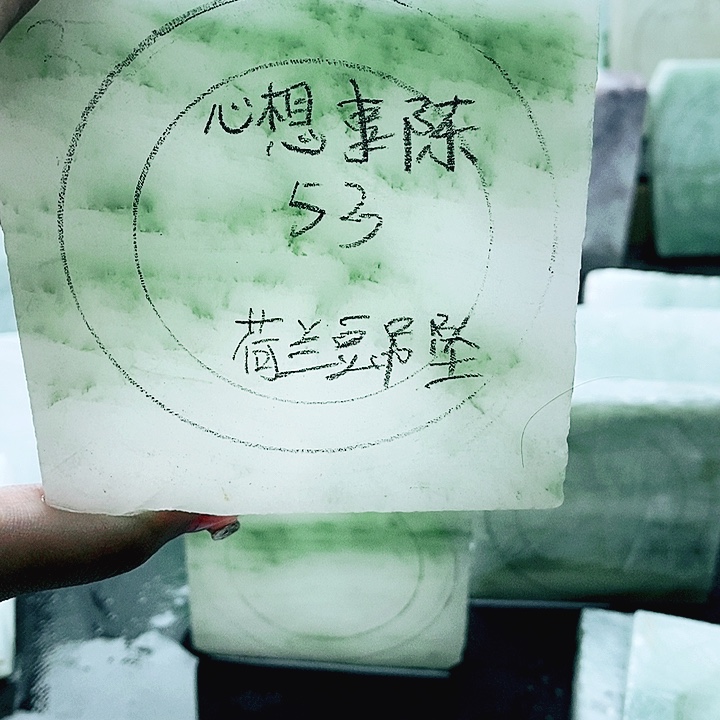 心想事陈
53
荷兰豆吊坠